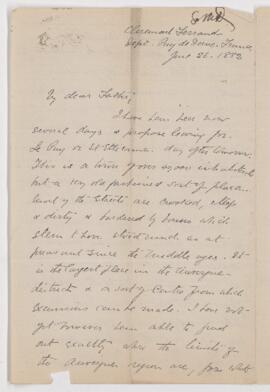 Clermont Ferrand
Dept. Puy de Dome, France
June 26. 1883
My dear Father,
I have been here now
several days & propose leaving for
Le Puy or St Etienne day after tomorrow.
This is a town of inhabitants
but a very old fashioned sort of place.
Most of the streets are crooked, steep
& dirty & bordered by houses which
seem to have stood much as at
present since the middle ages. It
is the largest place in the Auvergne
district & a sort of centre from which
excursions can be made. I have not
yet however been able to find
out exactly where the limits of
the Auvergne region are, for what